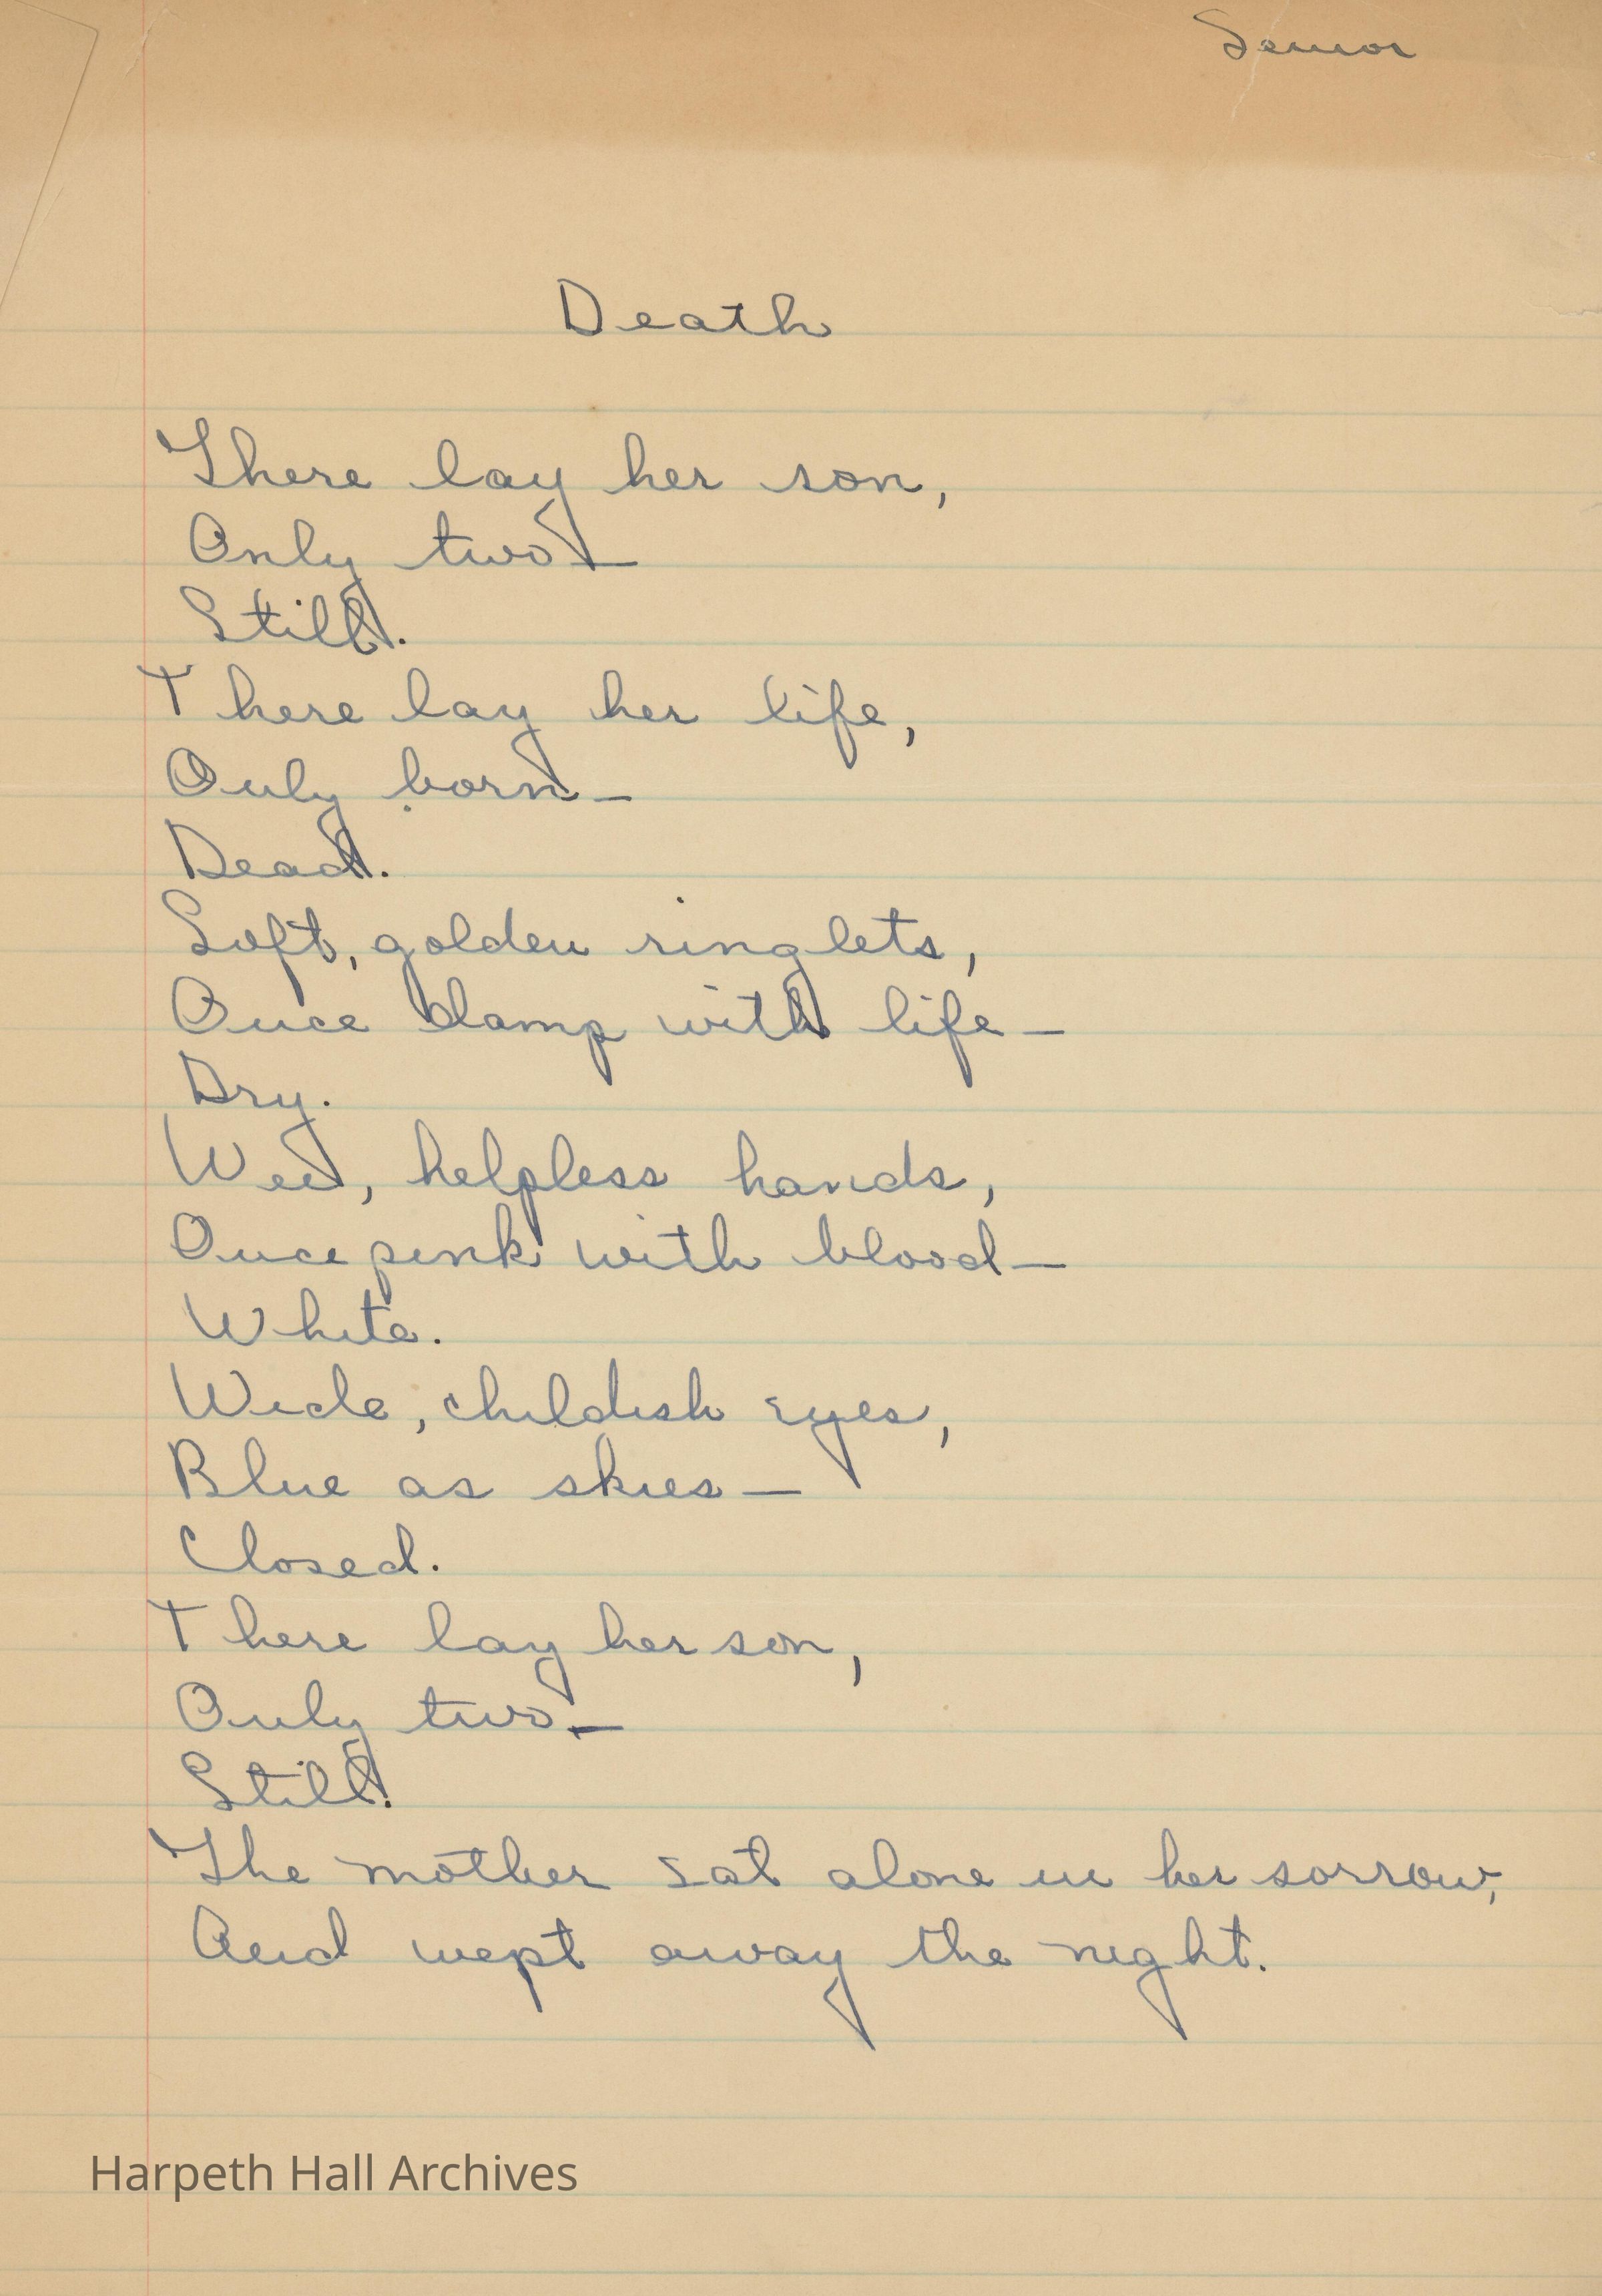 Senior
Death
There lay her son,
Only two —
Still.
There lay her life,
Only born —
Dead.
Soft, golden ringlets,
Once damp with life —
Dry.
Wee, helpless hands,
Once pink with blood —
White.
Wide, childish eyes,
Blue as skies —
Closed.
There lay her son,
Only two —
Still.
The mother sat alone in her sorrow,
And wept away the night.
Harpeth Hall Archives